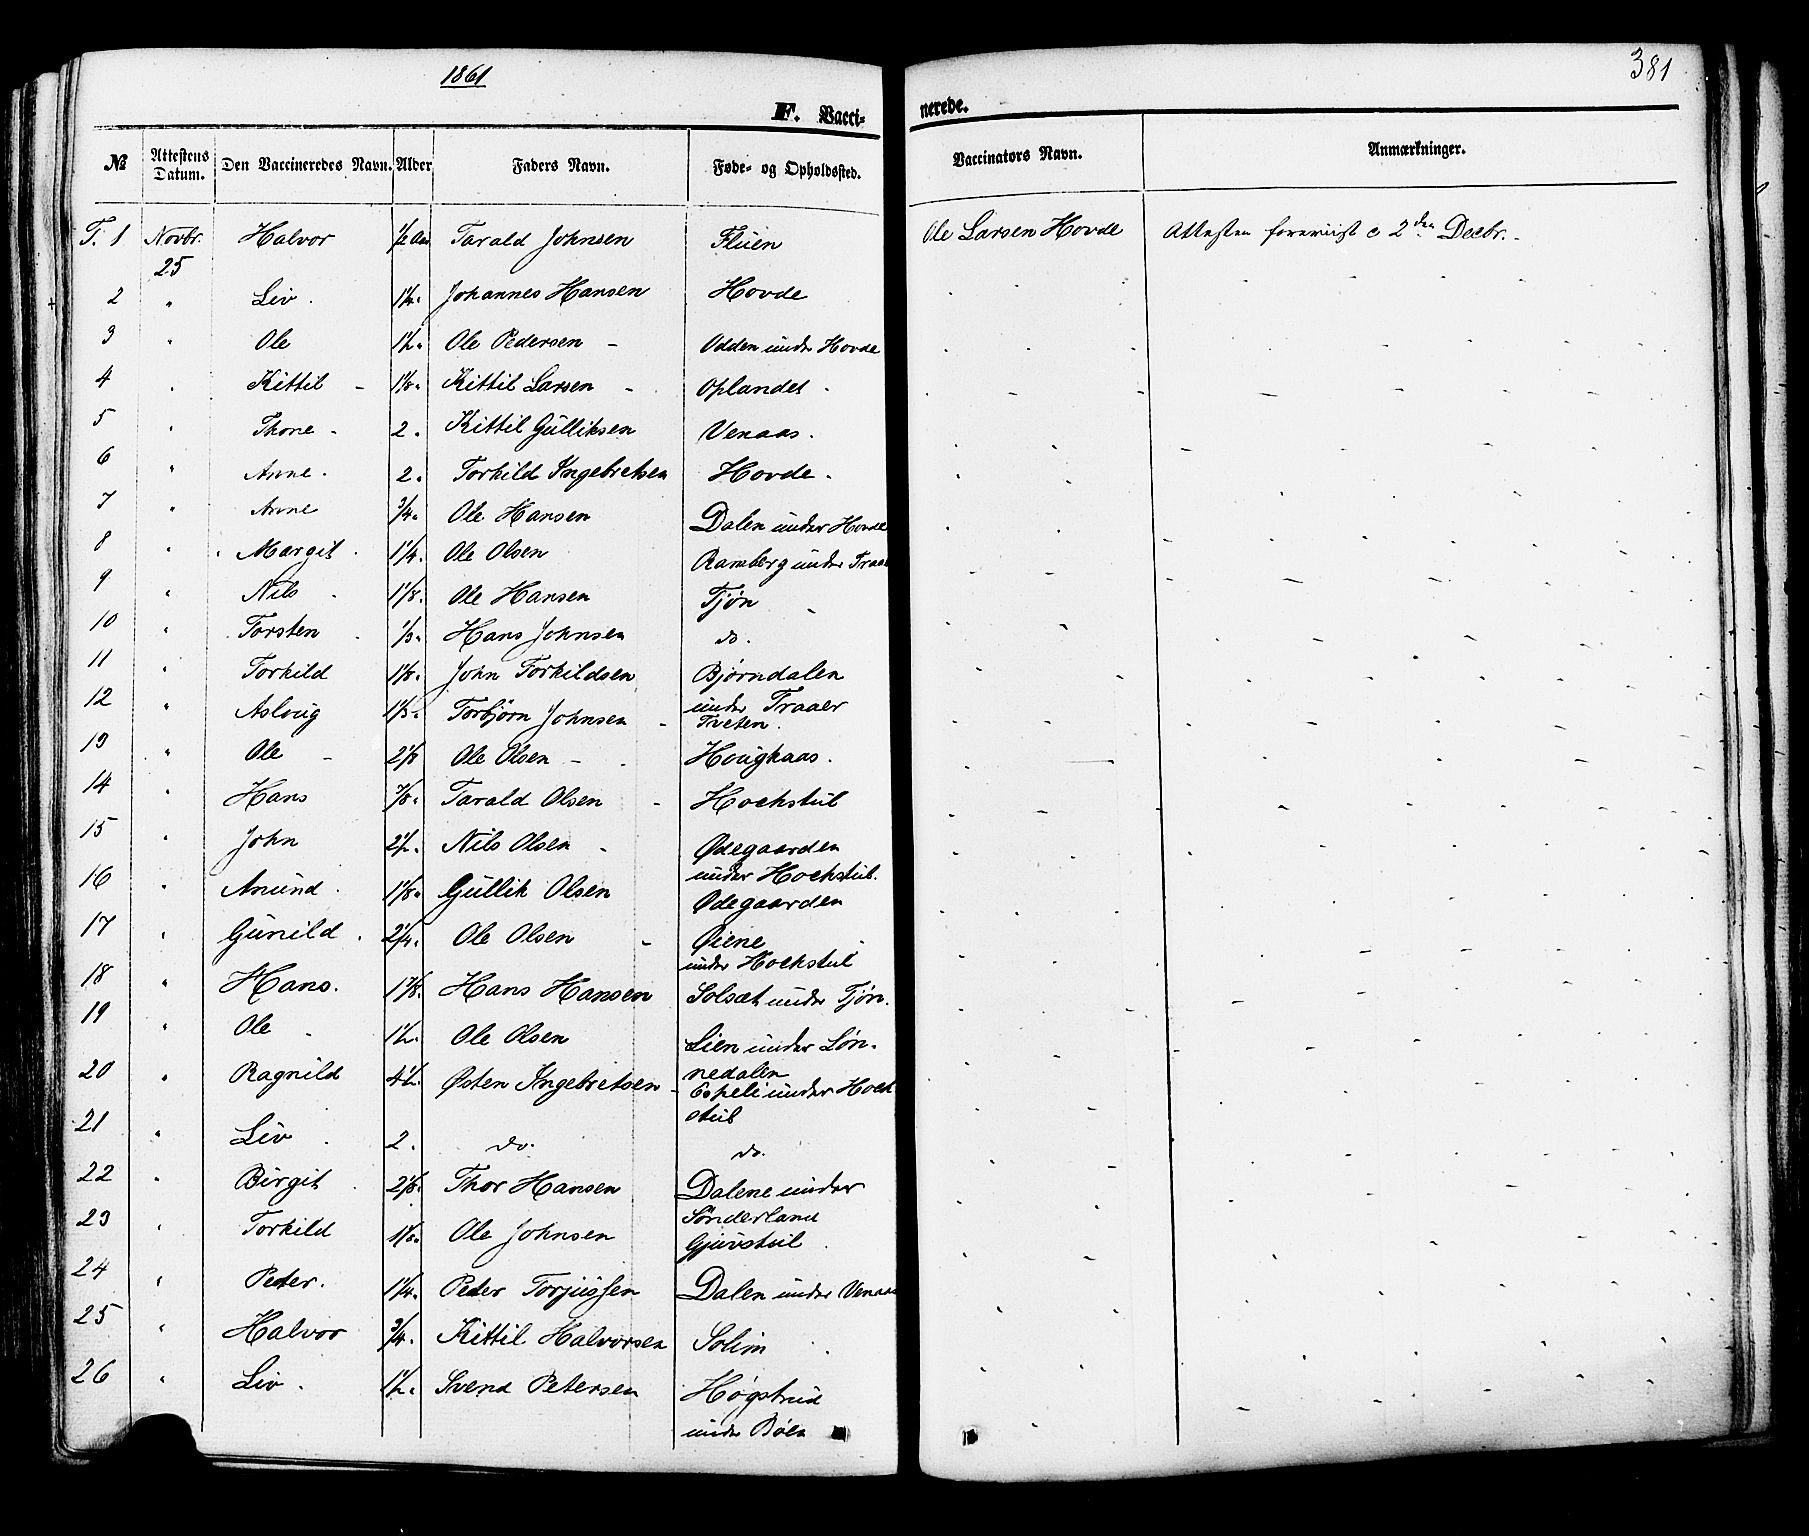 1861
381
F. Vacci-
nerede.
№ Attestens Datum. Den Vaccineredes Navn. Alder Faders Navn. Føde- og Opholdssted. Vaccinators Navn. Anmærkninger.
T. 1 Novbr. 25 Halvor 1/2 Aar Tarald Johnsen Flüen Ole Larsen Hovde Attesten foreviist d 2den Decbr.
2 " Liv. 1 1/4 " Johannes Hansen Hovde
3 " Ole 1 1/2 " Ole Pedersen Odden under Hovde
4 " Kittil 1 1/8 " Kittil Larsen Oplandet
5 " Thone 2 " Kittil Gülliksen Venaas.
6 " Anne. 2 " Torkild Ingebretsen Hovde.
7 " Anne 3/4 " Ole Hansen Dalen under Hovde
8 " Margit 1 1/4 " Ole Olsen Ramberg under Traaer
9 " Nils 1 1/8 " Ole Hansen Tjøn
10 " Torsten 1/3 " Hans Johnsen do.
11 " Torkild 1 1/8 " John Torkildsen Bjørndalen
under Traaer
12 " Asloug 1 1/3 " Torbjørn Johnsen Tveten.
13 " Ole 2 1/8 Ole Olsen Hougkaas.
14 " Hans 7/8 " Tarald Olsen Hockstul
15 " John 2 1/2 " Nils Olsen Ødegaarden
under Hockstul.
16 " Anund. 1 1/8 " Güllik Olsen Ødegaarden
17 " Günild. 2 1/4 " Ole Olsen Øiene
under Hockstul
18 " Hans. 1 7/8 " Hans Hansen Solsæt under Tjøn.
19 " Ole 1 1/2 " Ole Olsen Lien under Løn-
nedalen
20 " Ragnild 4 1/2 " Østen Ingebretsen Espeli under Hock
stul
21 " Liv 2. do. do.
22 " Birgit 2 1/8 " Thor Hansen Dalene under
Sønderland
23 " Torkild 1 1/8 " Ole Johnsen Gjuvstul
24 " Peter. 1 1/4 " Peter Torjussen Dalen under Venaas
25 " Halvor 3/4 " Kittil Halvorsen Solim
26 " Liv. 1 1/2 " Svend Petersen Høgstrud
under Bøen